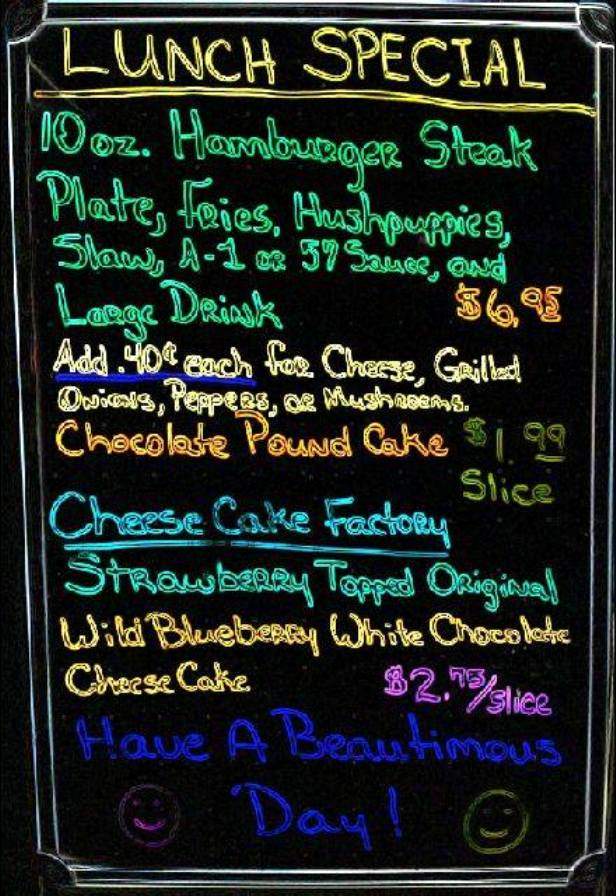 LUNCH SPECIAL
10 oz. Hamburger Steak
Plate, Fries, Hushpuppies,
Slaw, A-1 or 57 Sauce, and
Large Drink $6.95
Add .40¢ each for Cheese, Grilled
Onions, Peppers, or Mushrooms.
Chocolate Pound Cake $1.99
Slice
Cheese Cake Factory
Strawberry Topped Original
Wild Blueberry White Chocolate
Cheese Cake $2.75/slice
Have A Beautimous
Day!